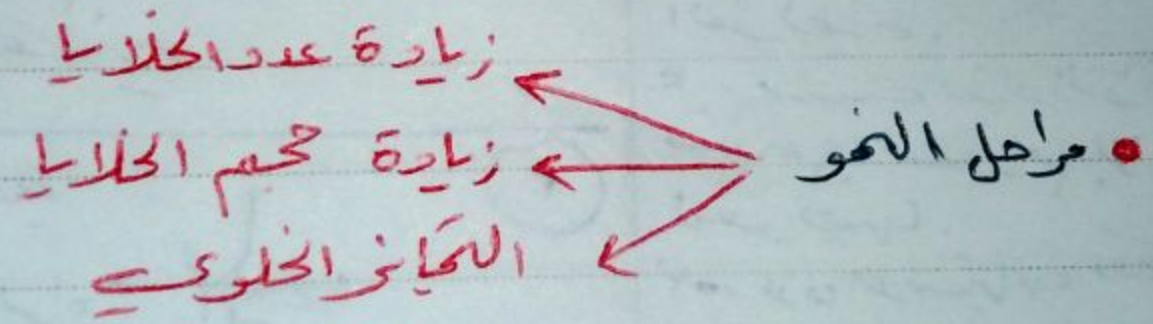 • مراحل النمو
زيادة عدد الخلايا
زيادة حجم الخلايا
التمايز الخلوي